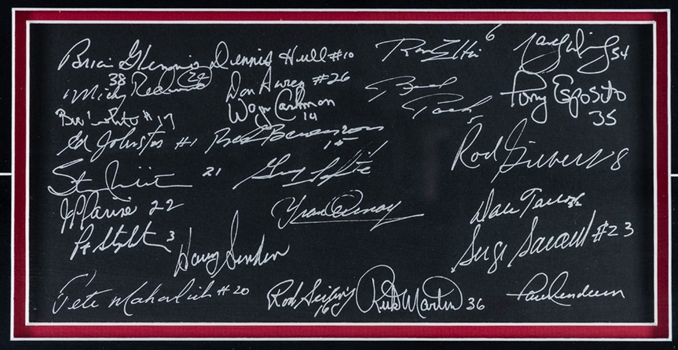 Brian Glennie 38
Dennis Hull #10
Ron Ellis 6
34
Micky Redmond 24
Don Awrey #26
Brad Park 5
Tony Esposito 35
Bill White #17
Wayne Cashman 14
Ed Johnston #1
Red Berenson 15
Rod Gilbert 8
Stan Mikita 21
Guy Lapointe
JP Parise 22
Yvan Cournoyer
Dale Tallon
Pat Stapleton 3
Harry Sinden
Serge Savard #23
Pete Mahovlich #20
Rod Seiling 16
Rick Martin 36
Paul Henderson